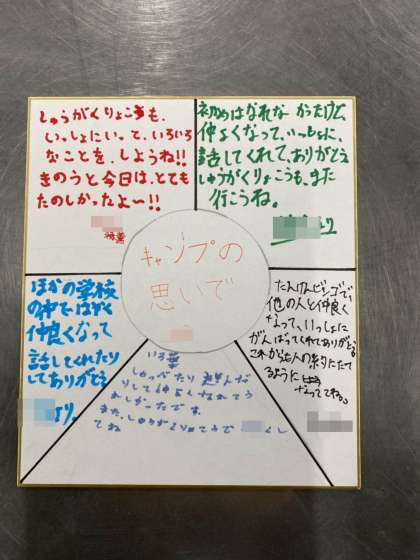 しゅうがくりょこうも、
いっしょにいって、いろいろ
なことを、しようね!!
きのうと今日は、とても
たのしかったよ〜!!
初めはなれなかったけど、
仲よくなって、いっしょに、
話してくれて、ありがとう
しゅうがくりょこうも、また
行こうね。
より
キャンプの
思いで
ほかの学校
の中で、はやく
仲良くなって
話してくれたり
してありがとう
より。
たんけんビンゴで、
他の人と仲良く
なって、いっしょに
がんばってくれてありがとう。
これからも人の役にたて
るように
なっててね。
しゃべったり 遊んだ
りして仲良くしてくれてう
れしかったです。
また、しゅうがくりょこうで
てね